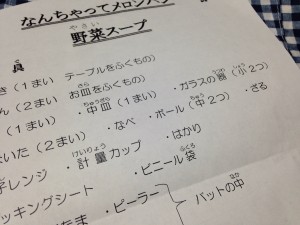 なんちゃってメロンパン
野菜スープ
具
き（1まい テーブルをふくもの）
ん（2まい お皿をふくもの）
（2まい）・中皿（1まい）・ガラスの器（小2つ）
いた（2まい）・なべ・ボール（中2つ）・ざる
子レンジ・計量カップ・はかり
ッキングシート・ビニール袋
たま・ピーラー
バットの中